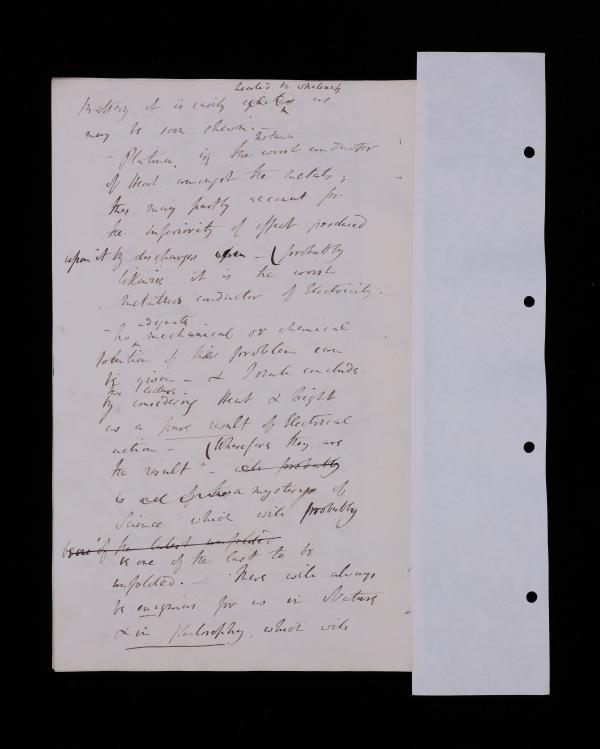 heated to whiteness
Battery it is easily as
may be soon shewn. –
instance
– Platina is the worst conductor
of Heat amongst the metals;
this may partly account for
the inferiority of effect produced
upon it by discharges – (probably
likewise it is the worst
metallic conductor of Electricity. –
adequate
– No mechanical or chemical
solution of the problem can
be given – & I shall conclude
this lecture
by considering Heat & Light
as a pure result of Electrical
action – (Wherefore they are
the result" – probably
is a mystery of
Science which will probably
be one of the latest unfolded
is one of the last to be
unfolded. – There will always
be enigmas for us in Nature
& in philosophy, which will